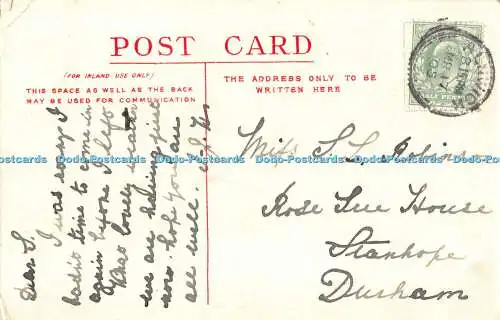 POST CARD
(FOR INLAND USE ONLY)
THIS SPACE AS WELL AS THE BACK
MAY BE USED FOR COMMUNICATION
THE ADDRESS ONLY TO BE
WRITTEN HERE
HALF PENNY
Dear S,
I was sorry I
hadn't time to come in
again before I left
lovely weather
we are having just
now. hope you are
all well
Miss S. L.
Rose Lue House
Stanhope
Durham
Dodo-Postcards Dodo-Postcards Dodo-Postcards Dodo-Postcards Dodo-Postcards